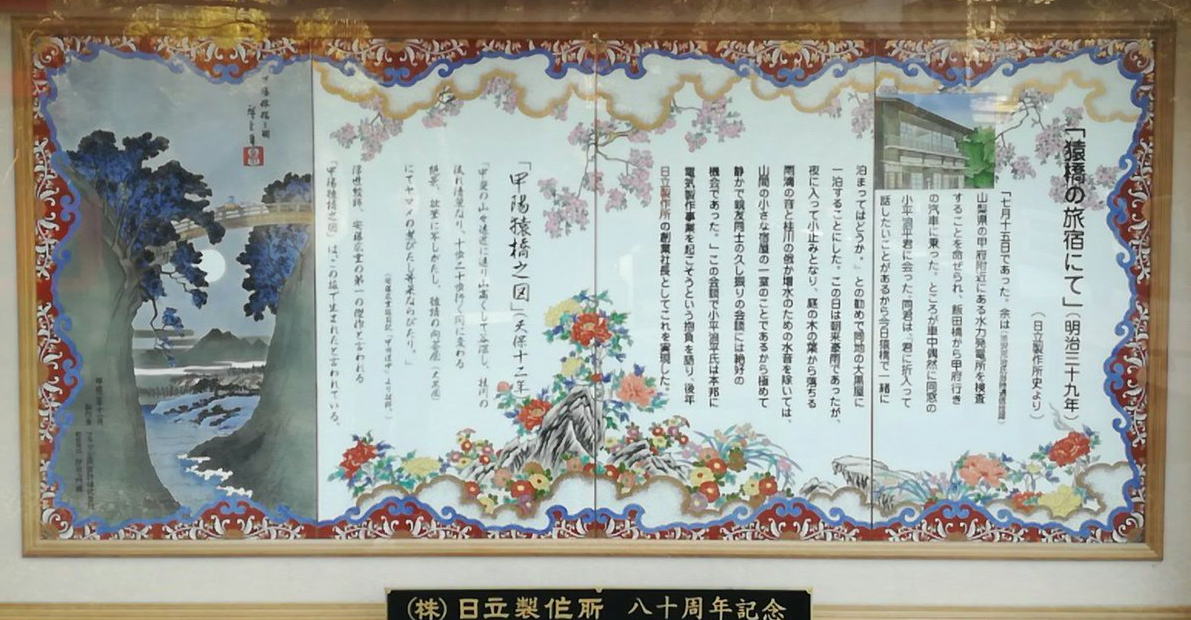 「猿橋の旅宿にて」(明治三十九年)
(日立製作所史より)
「七月十五日であった。余は
山梨県の甲府附近にある水力発電所を検査
することを命ぜられ、飯田橋から甲府行き
の汽車に乗った。ところが車中偶然に同窓の
小平浪平君に会った。同君は、「君に折入って
話したいことがあるから今日猿橋で一緒に
泊まってはどうか。」との勧めで同地の大黒屋に
一泊することにした。この日は朝来豪雨であったが、
夜に入って小止みとなり、庭の木の葉から落ちる
雨滴の音と桂川の俄か増水のための水音を除いては、
山間の小さな宿屋の一室のことであるから極めて
静かで親友同士の久し振りの会談には絶好の
機会であった。」この会談で小平浪平氏は本邦に
電気製作事業を起こそうという抱負を語り、後年
日立製作所の創業社長としてこれを実現した。
「甲陽猿橋之図」(天保十二年)
「甲斐の山々遠近に連り山高くして谷深し、桂川の
流れ清麗なり。十歩二十歩行く間に変わる
絶景、秋筆に写しがたし、猿橋の向茶屋(大黒屋)
にてヤマメの煮びたし
浮世絵師、安藤広重の第一の傑作と言われる
「甲陽猿橋之図」は、この旅で生まれたと言われている。
(株)日立製作所 八十周年記念